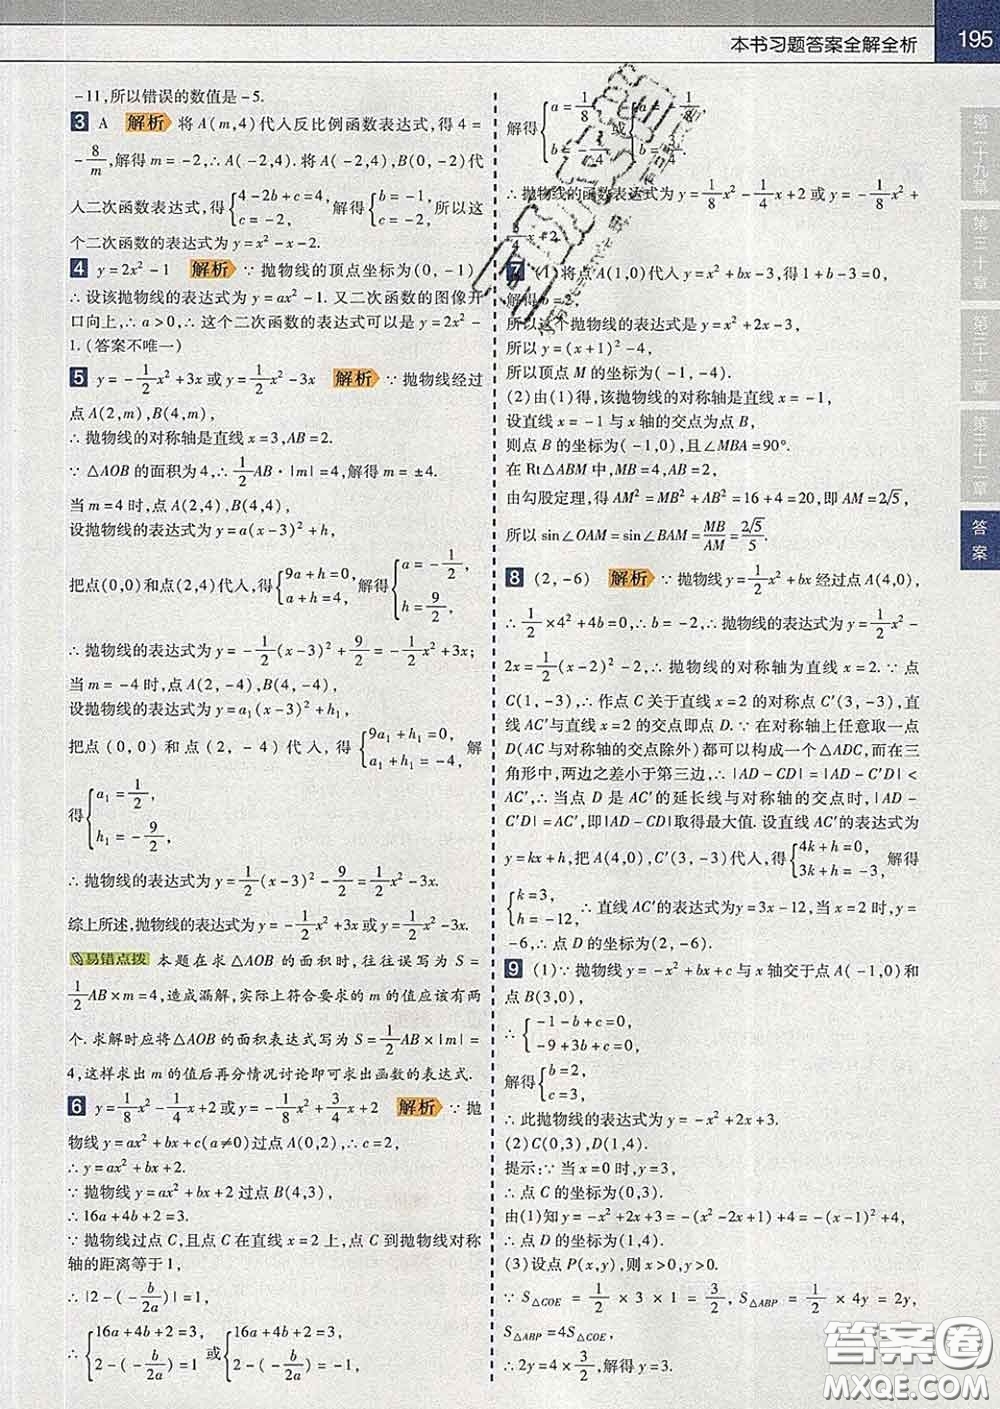 本书习题答案全解全析 195
-11,所以错误的数值是-5.
3 A 解析 将A(m,4)代入反比例函数表达式,得4=
-8/m,解得m=-2,∴A(-2,4).将A(-2,4),B(4,-2)代
入二次函数表达式,得{4-2b+c=4, c=-2, 解得{b=-1, c=-2, 所以这
个二次函数的表达式为y=x²-x-2.
4 y=2x²-1 解析 ∵抛物线的顶点坐标为(0,-1),
∴设该抛物线的表达式为y=ax²-1.又二次函数的图像开
口向上,∴a>0,∴这个二次函数的表达式可以是y=2x²-
1.(答案不唯一)
5 y=-1/2x²+3x或y=1/2x²-3x 解析 ∵抛物线经过
点A(2,m),B(4,m),
∴抛物线的对称轴是直线x=3,AB=2.
∵△AOB的面积为4,∴1/2AB·|m|=4,解得m=±4.
当m=4时,点A(2,4),B(4,4),
设抛物线的表达式为y=a(x-3)²+h,
把点(0,0)和点(2,4)代入,得{9a+h=0, a+h=4, 解得{a=-1/2, h=9/2,
∴抛物线的表达式为y=-1/2(x-3)²+9/2=-1/2x²+3x;
当m=-4时,点A(2,-4),B(4,-4),
设抛物线的表达式为y=a₁(x-3)²+h₁,
把点(0,0)和点(2,-4)代入,得{9a₁+h₁=0, a₁+h₁=-4, 解
得{a₁=1/2, h₁=-9/2,
∴抛物线的表达式为y=1/2(x-3)²-9/2=1/2x²-3x.
综上所述,抛物线的表达式为y=-1/2x²+3x或y=1/2x²-3x.
易错点拨 本题在求△AOB的面积时,往往误写为S=
1/2AB×m=4,造成漏解,实际上符合要求的m的值应该有两
个.求解时应将△AOB的面积表达式写为S=1/2AB×|m|=
4,这样求出m的值后再分情况讨论即可求出函数的表达式.
6 y=1/8x²-1/4x+2或y=-1/8x²+3/4x+2 解析 ∵抛
物线y=ax²+bx+c(a≠0)过点A(0,2),∴c=2,
∴y=ax²+bx+2.
∵抛物线y=ax²+bx+2过点B(4,3),
∴16a+4b+2=3.
∵抛物线过点C,且点C在直线x=2上,点C到抛物线对称
轴的距离等于1,
∴|2-(-b/2a)|=1,
∴{16a+4b+2=3, 2-(-b/2a)=1 或{16a+4b+2=3, 2-(-b/2a)=-1,
解得{a=1/8, b=-1/4 或{a=-1/8, b=3/4,
∴抛物线的函数表达式为y=1/8x²-1/4x+2或y=-1/8x²+
3/4x+2.
7 (1)将点A(1,0)代入y=x²+bx-3,得1+b-3=0,
解得b=2,
所以这个抛物线的表达式是y=x²+2x-3,
所以y=(x+1)²-4,
所以顶点M的坐标为(-1,-4).
(2)由(1)得,该抛物线的对称轴是直线x=-1,
设直线x=-1与x轴的交点为点B,
则点B的坐标为(-1,0),且∠MBA=90°.
在Rt△ABM中,MB=4,AB=2,
由勾股定理,得AM²=MB²+AB²=16+4=20,即AM=2√5,
所以sin∠OAM=sin∠BAM=MB/AM=2√5/5.
8 (2,-6) 解析 ∵抛物线y=1/2x²+bx经过点A(4,0),
∴1/2×4²+4b=0,∴b=-2,∴抛物线的表达式为y=1/2x²-
2x=1/2(x-2)²-2,∴抛物线的对称轴为直线x=2.∵点
C(1,-3),∴作点C关于直线x=2的对称点C′(3,-3),直
线AC′与直线x=2的交点即点D.∵在对称轴上任意取一点
D(AC与对称轴的交点除外)都可以构成一个△ADC,而在三
角形中,两边之差小于第三边,∴|AD-CD|=|AD-C′D|<
AC′,∴当点D是AC′的延长线与对称轴的交点时,|AD-
C′D|=AC′,即|AD-CD|取得最大值.设直线AC′的表达式为
y=kx+h,把A(4,0),C′(3,-3)代入,得{4k+h=0, 3k+h=-3, 解得
{k=3, h=-12, ∴直线AC′的表达式为y=3x-12,当x=2时,y=
-6,∴点D的坐标为(2,-6).
9 (1)∵抛物线y=-x²+bx+c与x轴交于点A(-1,0)和
点B(3,0),
∴{-1-b+c=0, -9+3b+c=0,
解得{b=2, c=3,
∴此抛物线的表达式为y=-x²+2x+3.
(2)C(0,3),D(1,4).
提示:∵当x=0时,y=3,
∴点C的坐标为(0,3).
由(1)知y=-x²+2x+3=-(x²-2x+1)+4=-(x-1)²+4,
∴点D的坐标为(1,4).
(3)设点P(x,y),则x>0,y>0.
∵S△COE=1/2×3×1=3/2,S△ABP=1/2×4y=2y,
S△ABP=4S△COE,
∴2y=4×3/2,解得y=3.
第二十九章
第三十章
第三十一章
第三十二章
答案
答案圈
MXQE.COM